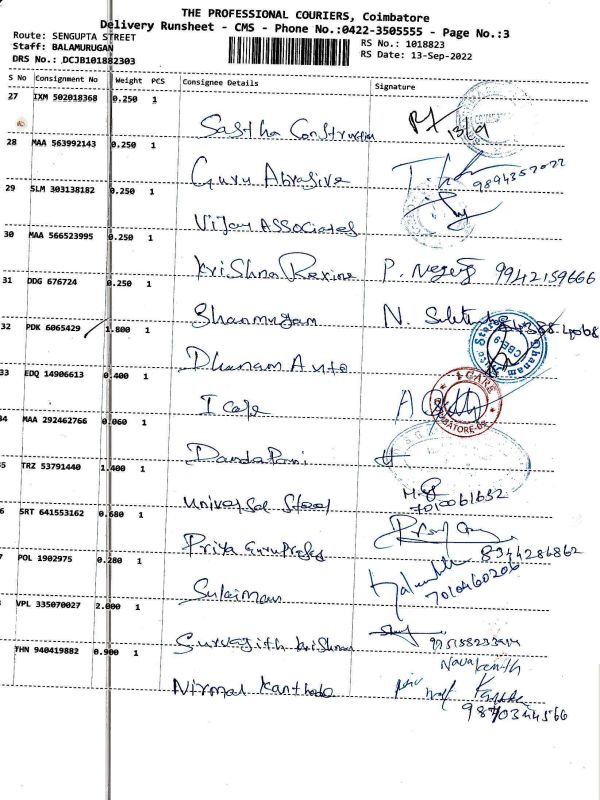 THE PROFESSIONAL COURIERS, Coimbatore
Delivery Runsheet - CMS - Phone No.:0422-3505555 - Page No.:3
Route: SENGUPTA STREET
Staff: BALAMURUGAN
DRS No.: DCJB101882303
RS No.: 1018823
RS Date: 13-Sep-2022
S No Consignment No Weight PCS Consignee Details Signature
27 IXM 502018368 0.250 1
Sastha Construction 13/9
28 MAA 563992143 0.250 1
Guru Abrasive
29 SLM 303138182 0.250 1
Vijay Associates
30 MAA 566523995 0.250 1
Krishna Rexine P. 9942159666
31 DDG 676724 0.250 1
Shanmugam N.
32 PDK 6065429 1.800 1
Dhanam Auto
33 EDQ 14906613 0.400 1
I Care
I CARE
34 MAA 292462766 0.060 1
DandaPani
35 TRZ 53791440 1.400 1
Universal Steel
7010061652
6 SRT 641553162 0.680 1
Priya
8344286862
7 POL 1902975 0.280 1
Sulaiman
7010460206
VPL 335070027 2.000 1
Guruvajith Krishnan
THN 940419882 0.900 1
Navakanth
Nirmal
9870344566